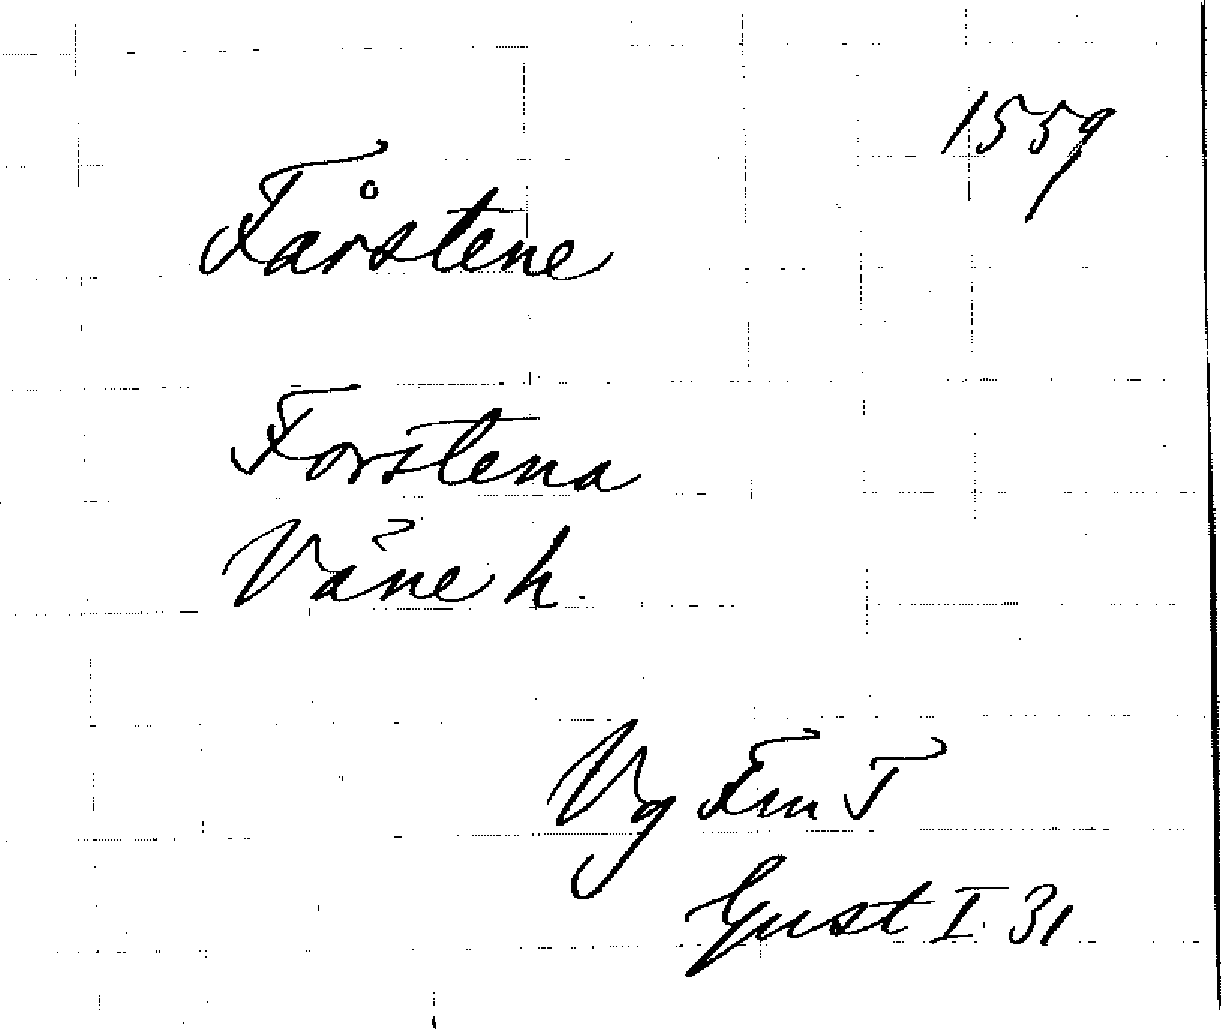 1559
Fårstene
Forstena
Väne h.
Vg Fm T
Gust I. 31